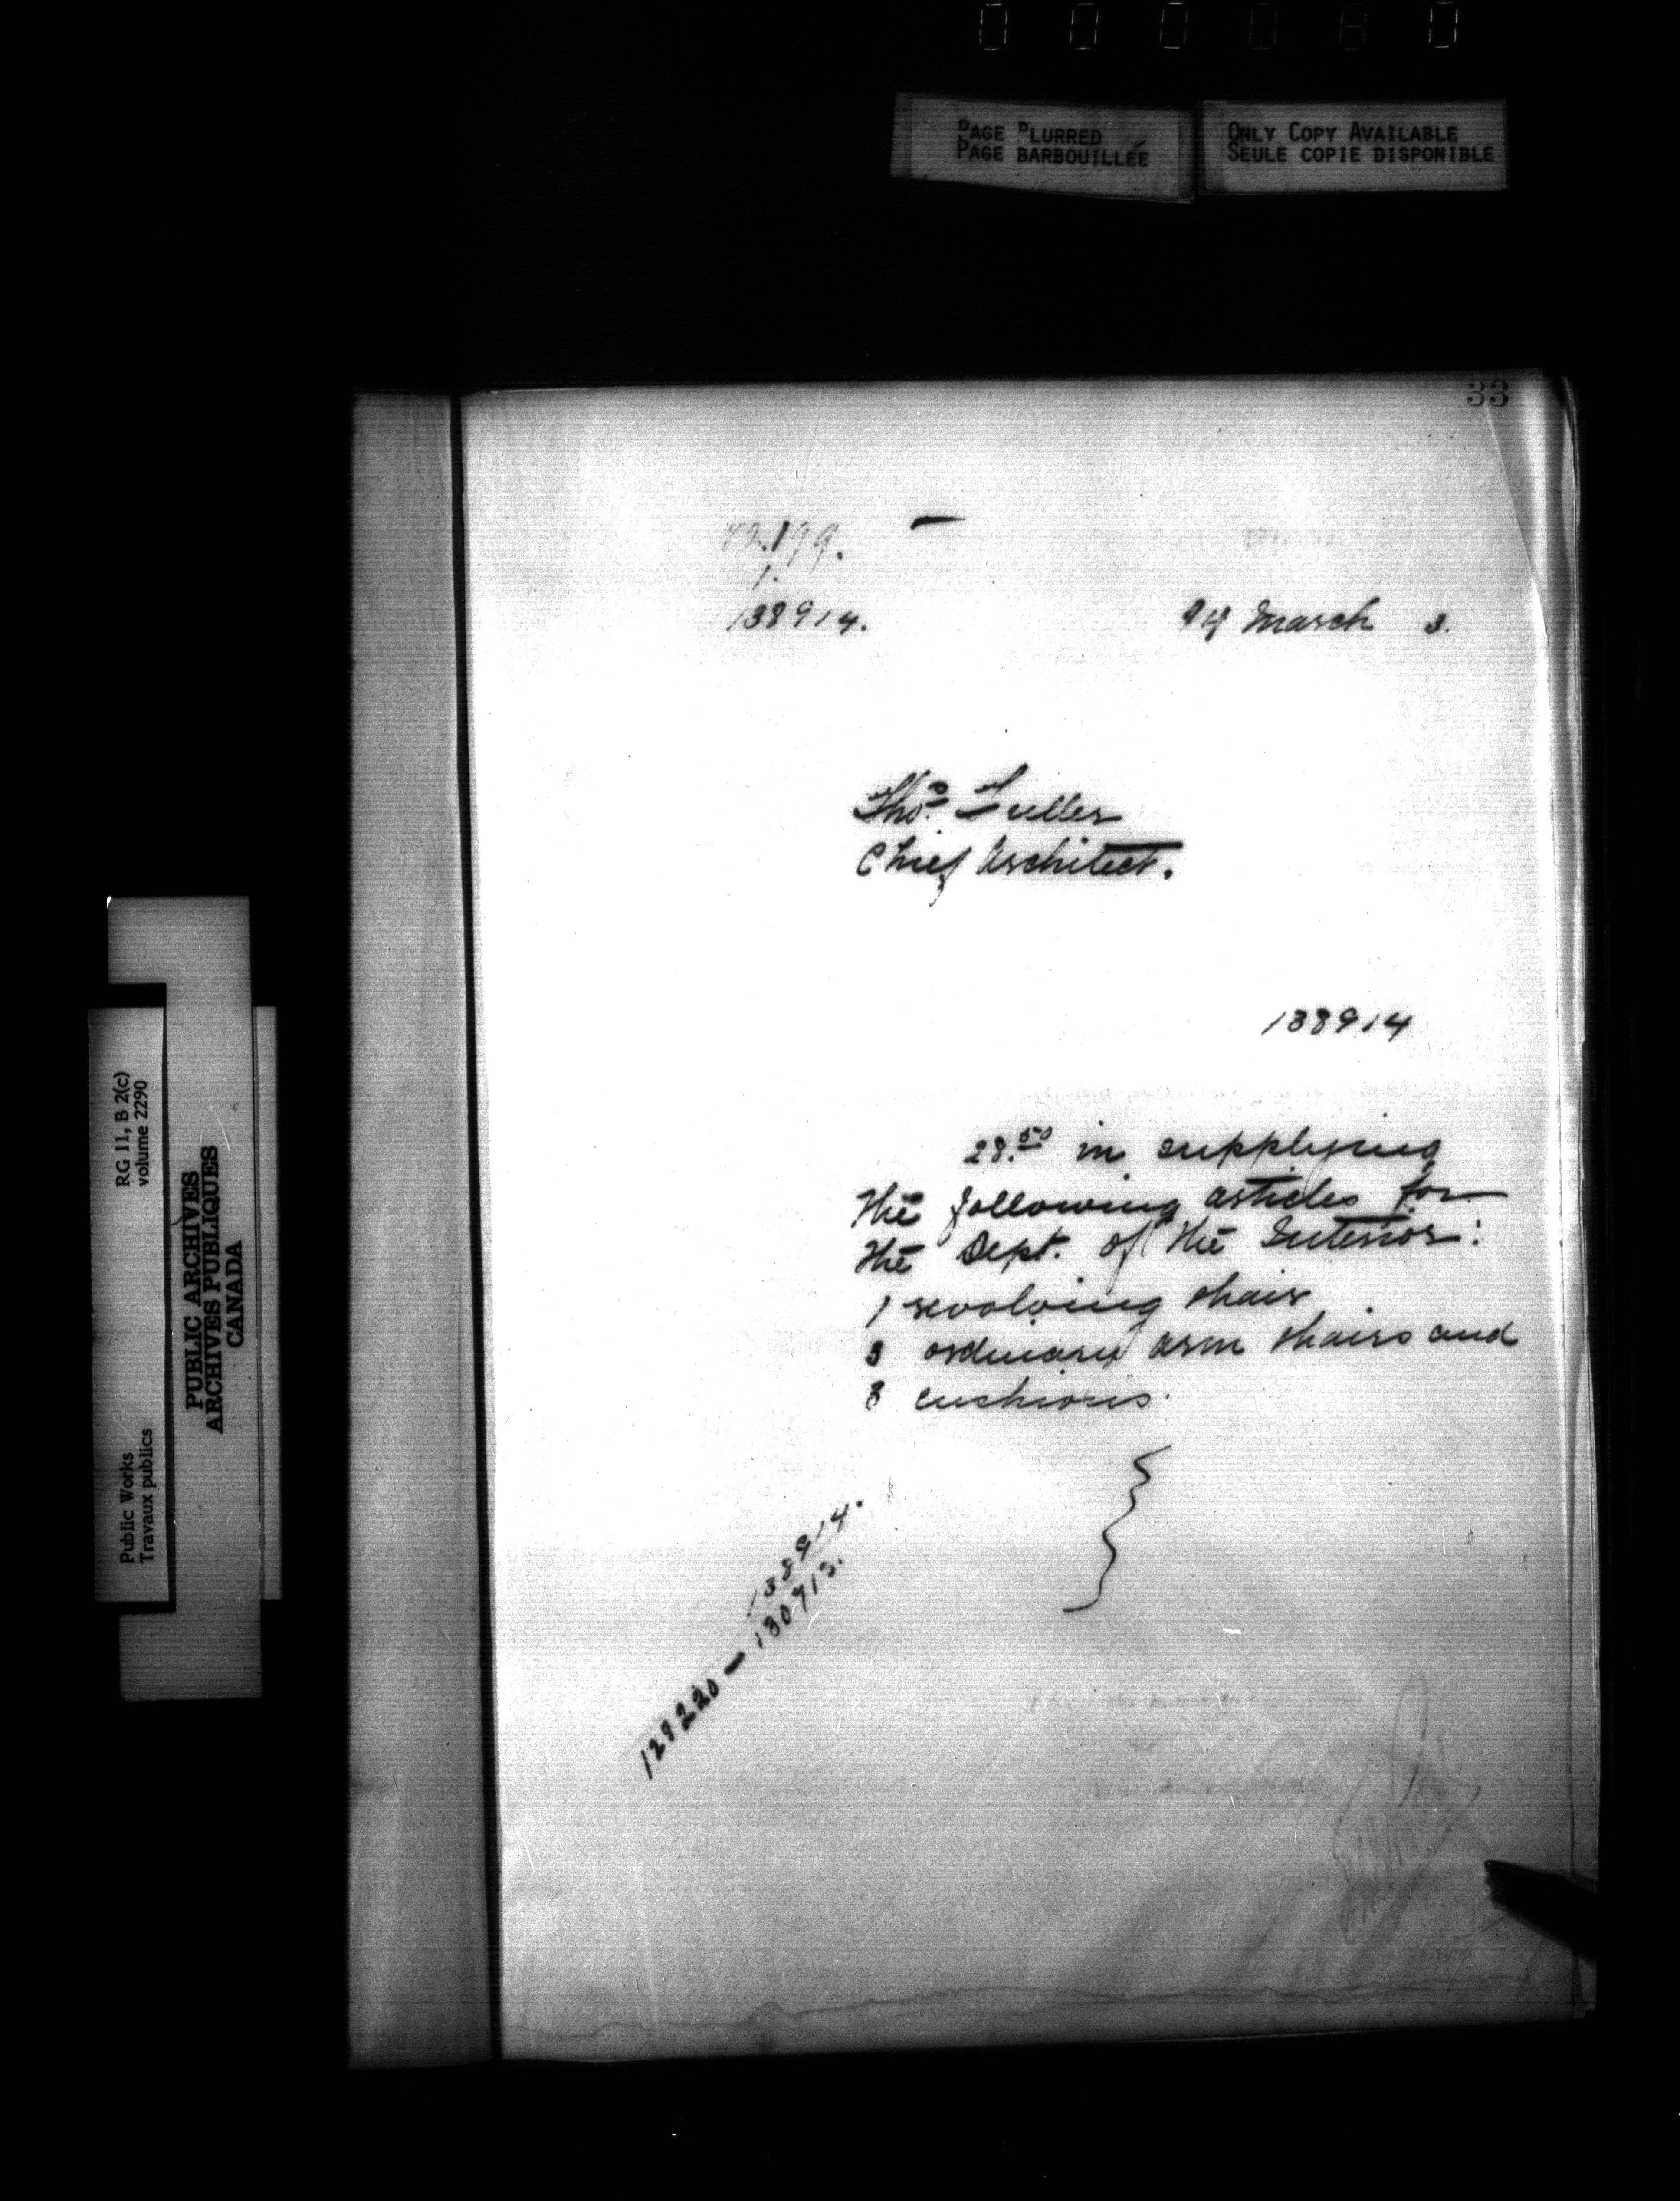 PAGE BLURRED
PAGE BARBOUILLÉE
ONLY COPY AVAILABLE
SEULE COPIE DISPONIBLE
33
199.
1.
138914.
March 3.
Thos. Fuller
Chief Architect.
138914
28.50 in supplying
the following articles for
the Dept. of the Interior:
1 revolving chair
3 ordinary arm chairs and
3 cushions.
138914.
129220 — 130713.
RG 11, B 2(c)
volume 2290
PUBLIC ARCHIVES
ARCHIVES PUBLIQUES
CANADA
Public Works
Travaux publics